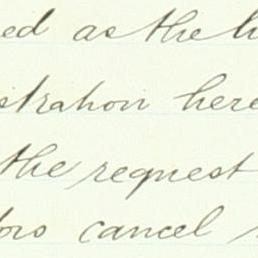 ed as the h
stration here
the request
tors cancel